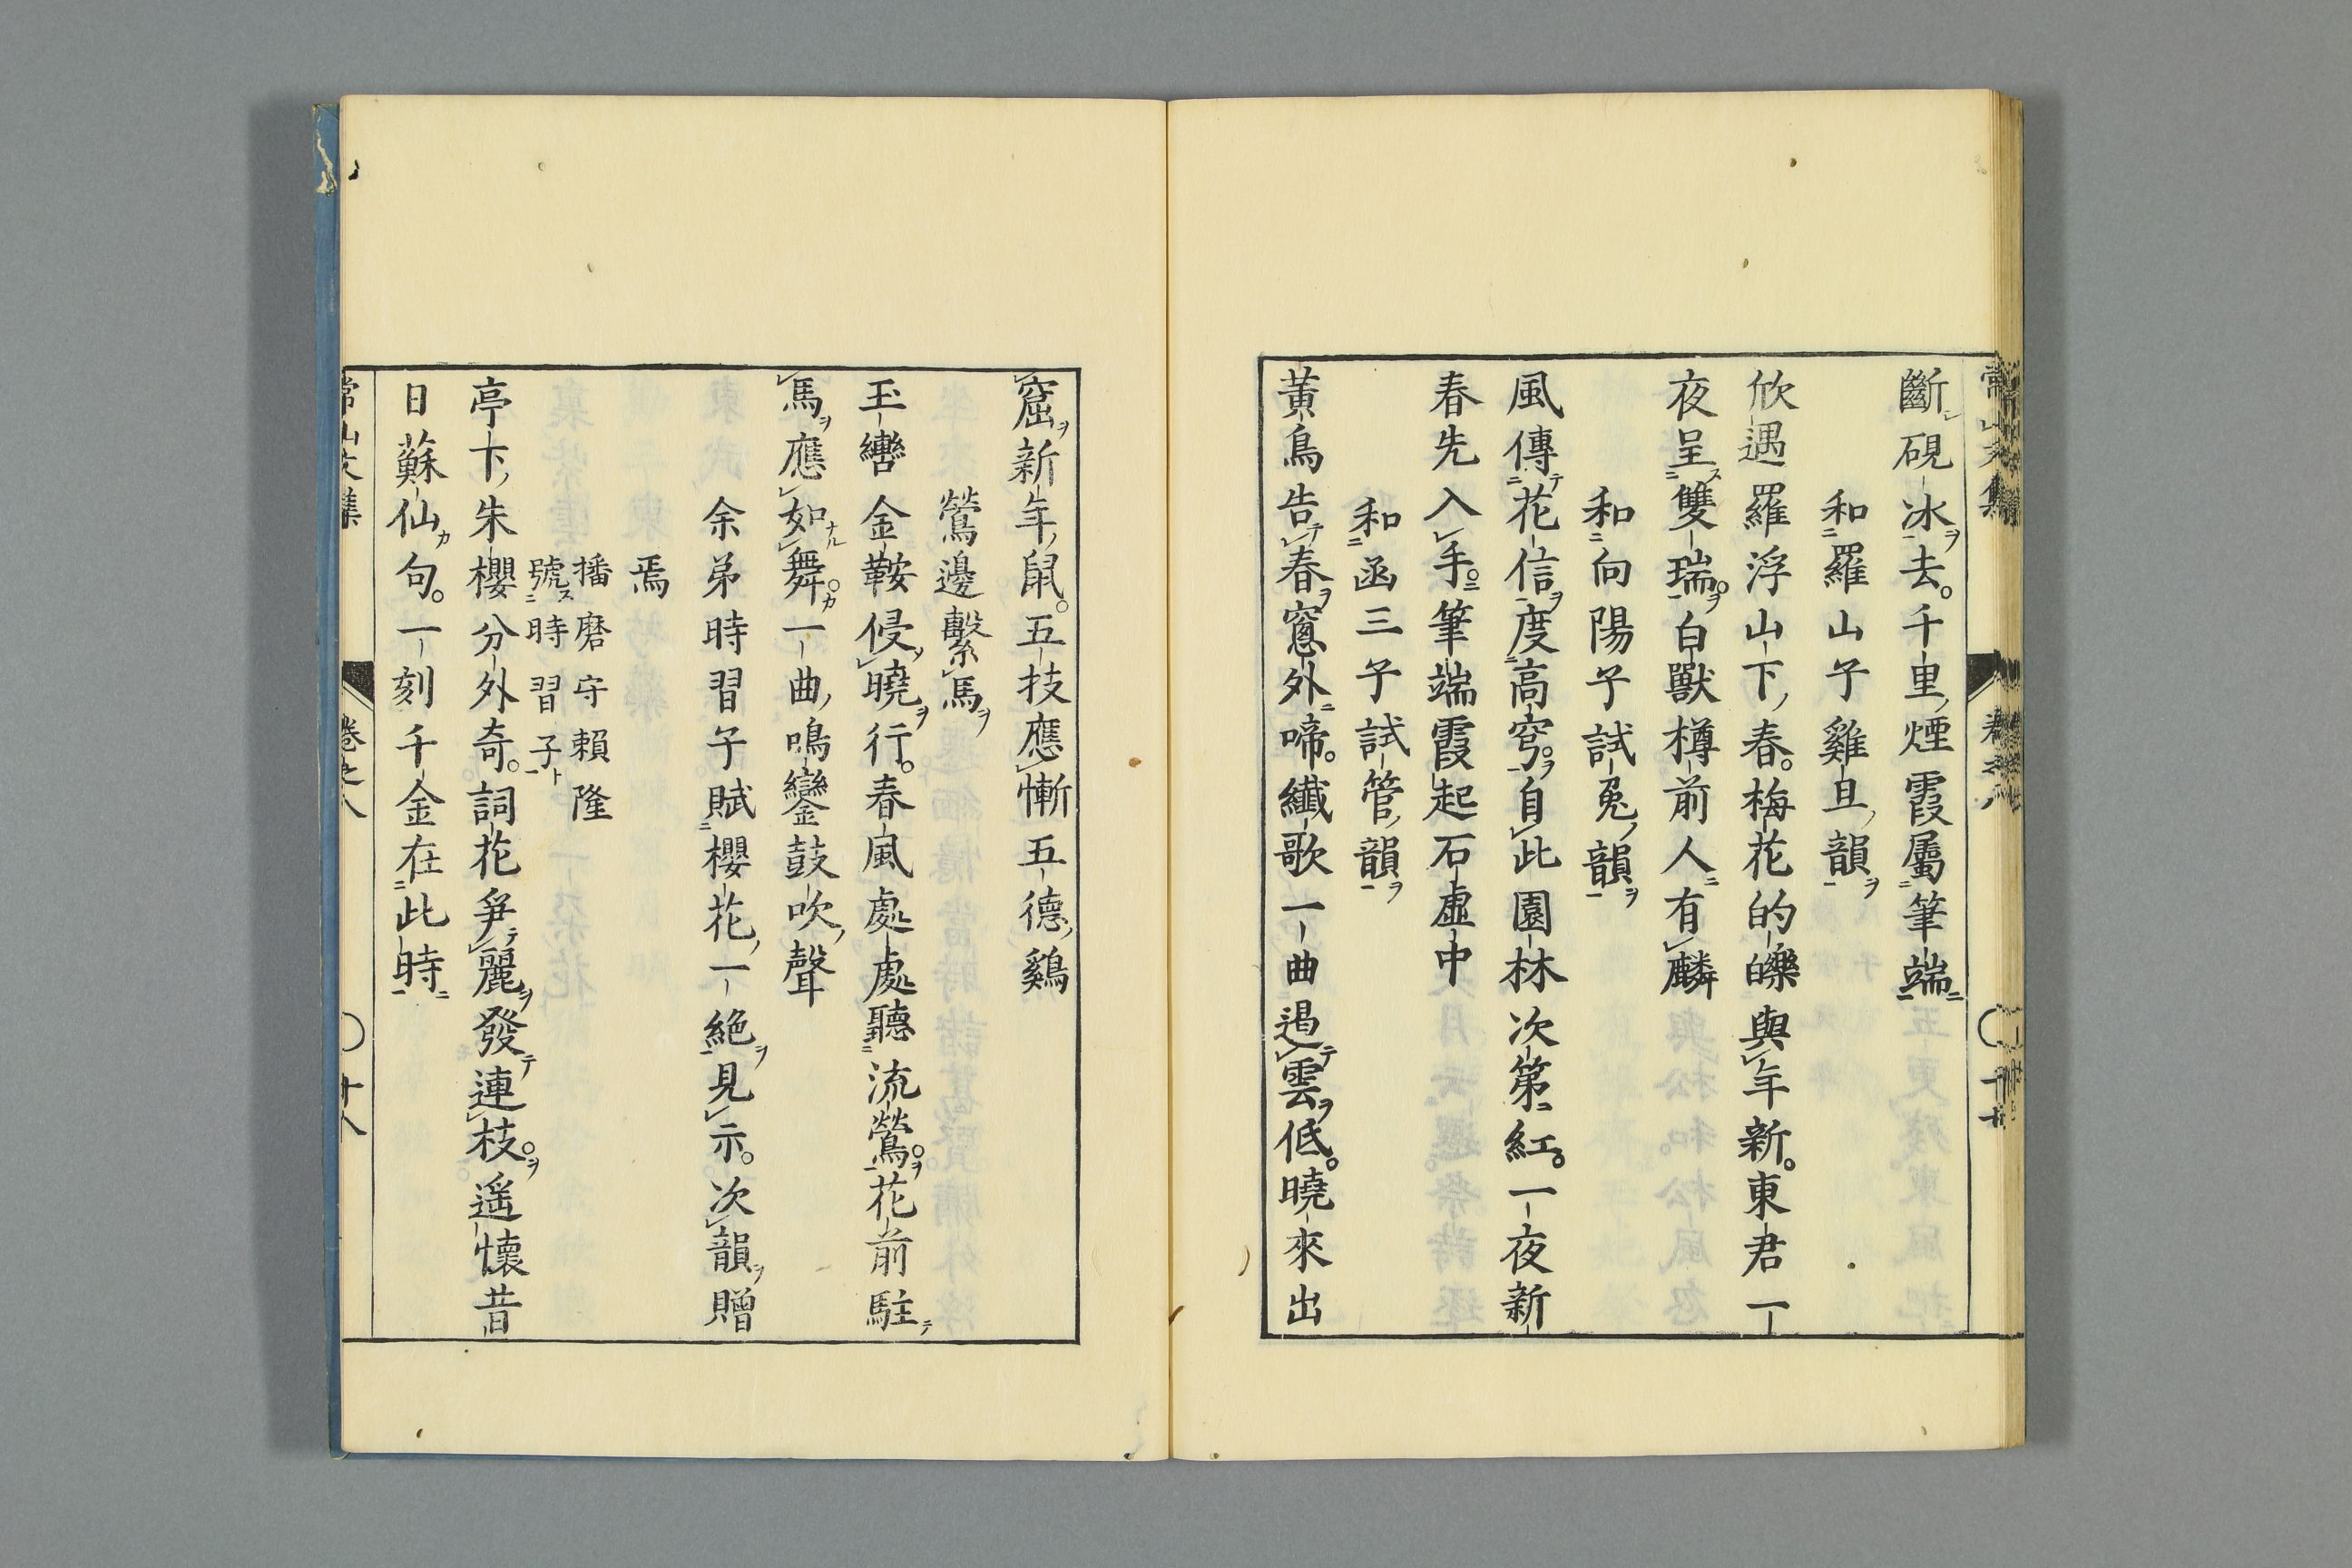 斷硯冰去。千里煙霞屬筆端
和羅山子雞旦韻
欣遇羅浮山下春。梅花的皪與年新。東君一
夜呈雙瑞。白獸樽前人有麟
和向陽子試兔韻
風傳花信度高穹。自此園林次第紅。一夜新
春先入手。筆端霞起石虛中
和函三子試管韻
黃鳥告春窻外啼。纖歌一曲遏雲低。曉來出
窟新年鼠。五技應慚五德鷄
鶯邊繫馬
玉轡金鞍侵曉行。春風處處聽流鶯。花前駐
馬應如舞。一曲鳴鑾鼓吹聲
余弟時習子賦櫻花一絶見示。次韻贈
焉
播磨守賴隆
號時習子
亭下朱櫻分外奇。詞花爭麗發連枝。遥懷昔
日蘇仙句。一刻千金在此時
常山文集 卷之八 〇十八